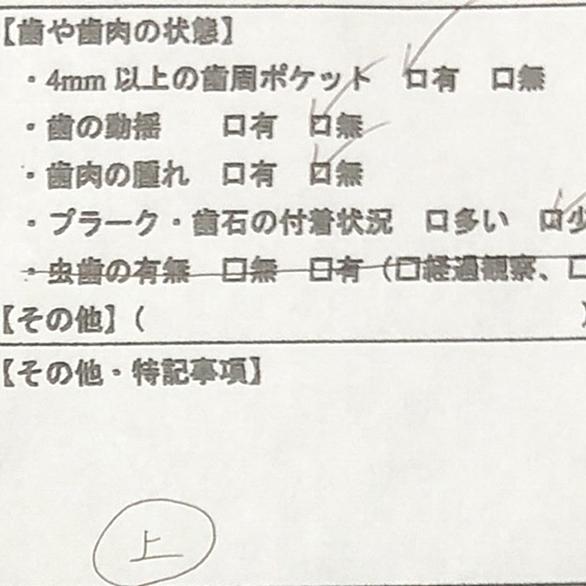 【歯や歯肉の状態】
・4mm 以上の歯周ポケット ☑有 □無
・歯の動揺 □有 ☑無
・歯肉の腫れ □有 ☑無
・プラーク・歯石の付着状況 □多い ☑少
・虫歯の有無 □無 □有（□経過観察、□
【その他】（
【その他・特記事項】
上